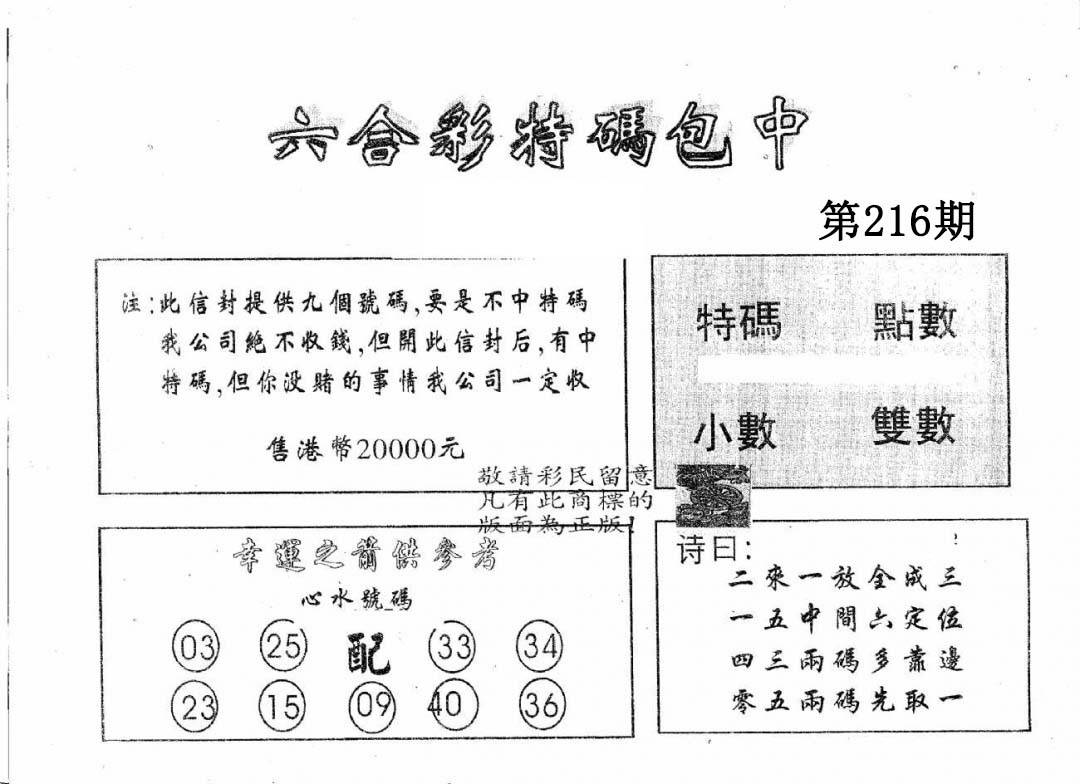 六合彩特碼包中
第216期
注:此信封提供九個號碼,要是不中特碼
我公司絕不收錢,但開此信封后,有中
特碼,但你没賭的事情我公司一定收
售港幣20000元
特碼 點數
小數 雙數
敬請彩民留意
凡有此商標的
版面為正版!
幸運之箭供參考
心水號碼
03 25 配 33 34
23 15 09 40 36
诗曰:
二來一放全成三
一五中間六定位
四三兩碼多靠邊
零五兩碼先取一